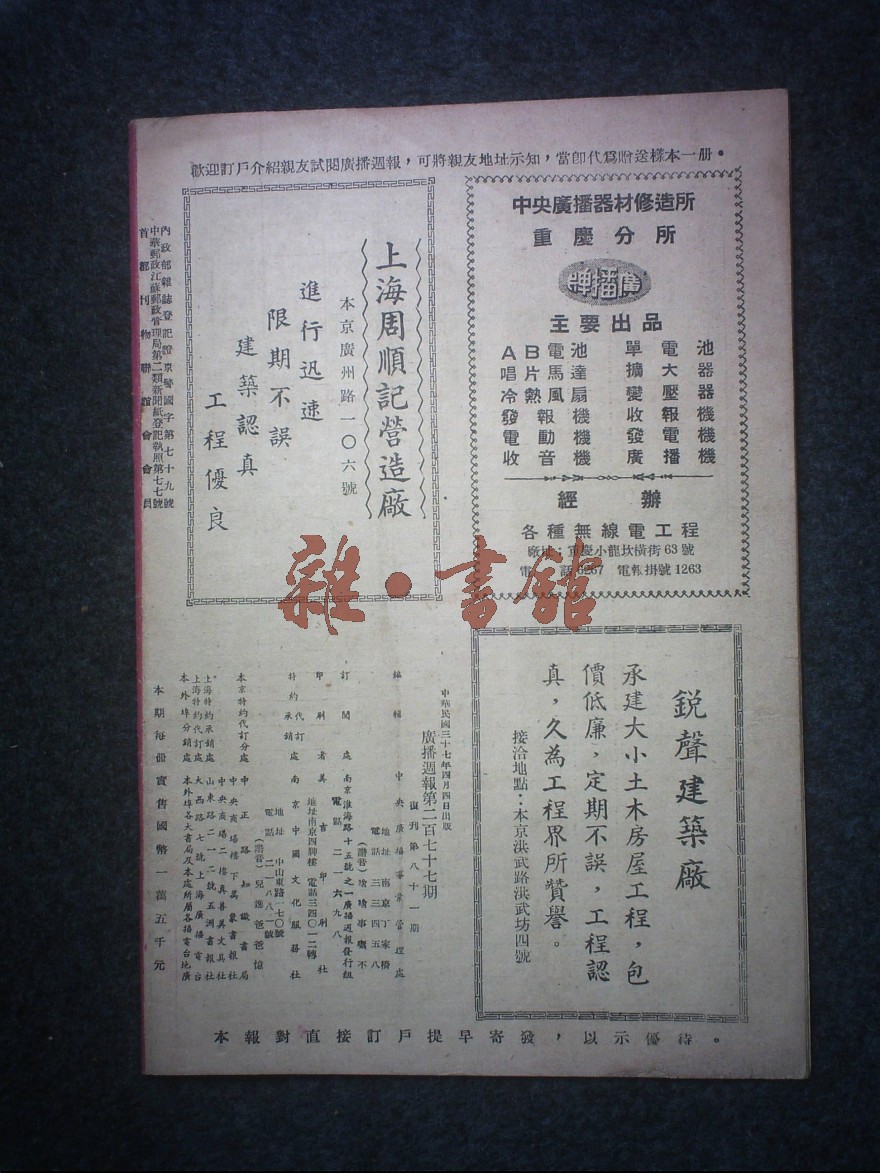 歡迎訂戶介紹親友試閱廣播週報，可將親友地址示知，當卽代爲贈送樣本一册。
中央廣播器材修造所
重慶分所
廣播牌
主要出品
AB電池　單電池
唱片馬達　擴大器
冷熱風扇　變壓器
發報機　收報機
電動機　發電機
收音機　廣播機
經辦
各種無線電工程
廠址：重慶小龍坎橫街63號
電話6267　電報掛號1263
上海周順記營造廠
本京廣州路一〇六號
進行迅速
限期不誤
建築認真
工程優良
內政部雜誌登記證京警國字第七十九號
中華郵政江蘇郵政管理局第二類新聞紙登記執照第七七號
首都刊物聯誼會會員
銳聲建築廠
承建大小土木房屋工程，包
價低廉，定期不誤，工程認
真，久為工程界所贊譽。
接洽地點：本京洪武路洪武坊四號
中華民國三十七年四月四日出版
廣播週報第二百七十七期
復刊第八十一期
編輯　中央廣播事業管理處
地址　南京丁家橋
電話　三三四五八
訂閱處　南京淮海路十五號之一廣播週報發行組
電話　二一六九八
印刷者　美吉印刷社
地址南京四牌樓　電話三四〇一二轉
特約代訂承銷處　南京中國文化服務社
地址　中山東路一七〇號
電話　二一八八一號
本京特約代訂分處　中正路知識書局
中央商場樓下萬象書報社
中央商場二樓真善美文具社
上海特約承銷處　山東路二一二號五洲書報社
上海特約代訂處　大西路七號上海廣播電台
本外埠分銷處　本外埠各大書局及本處所屬各播電台地廣
本期每册實售國幣一萬五千元
本報對直接訂戶提早寄發，以示優待。
雜・書館